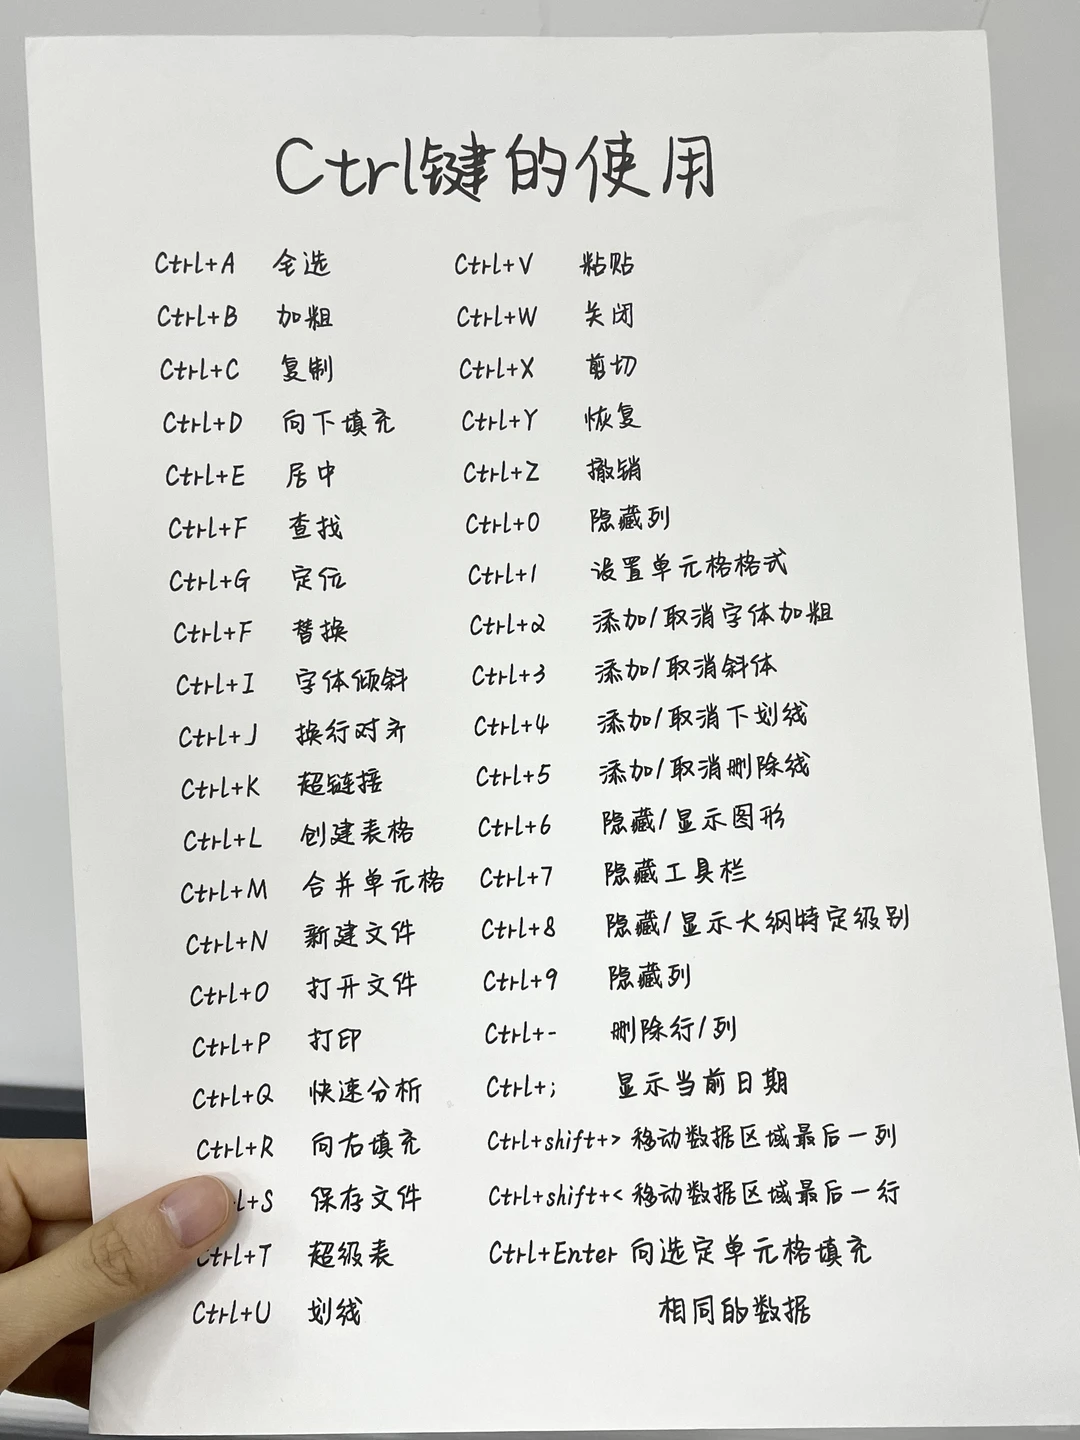 Ctrl键的使用
Ctrl+A 全选
Ctrl+B 加粗
Ctrl+C 复制
Ctrl+D 向下填充
Ctrl+E 居中
Ctrl+F 查找
Ctrl+G 定位
Ctrl+F 替换
Ctrl+I 字体倾斜
Ctrl+J 换行对齐
Ctrl+K 超链接
Ctrl+L 创建表格
Ctrl+M 合并单元格
Ctrl+N 新建文件
Ctrl+O 打开文件
Ctrl+P 打印
Ctrl+Q 快速分析
Ctrl+R 向右填充
l+S 保存文件
Ctrl+T 超级表
Ctrl+U 划线
Ctrl+V 粘贴
Ctrl+W 关闭
Ctrl+X 剪切
Ctrl+Y 恢复
Ctrl+Z 撤销
Ctrl+0 隐藏列
Ctrl+1 设置单元格格式
Ctrl+2 添加/取消字体加粗
Ctrl+3 添加/取消斜体
Ctrl+4 添加/取消下划线
Ctrl+5 添加/取消删除线
Ctrl+6 隐藏/显示图形
Ctrl+7 隐藏工具栏
Ctrl+8 隐藏/显示大纲特定级别
Ctrl+9 隐藏列
Ctrl+- 删除行/列
Ctrl+; 显示当前日期
Ctrl+shift+> 移动数据区域最后一列
Ctrl+shift+< 移动数据区域最后一行
Ctrl+Enter 向选定单元格填充
相同的数据